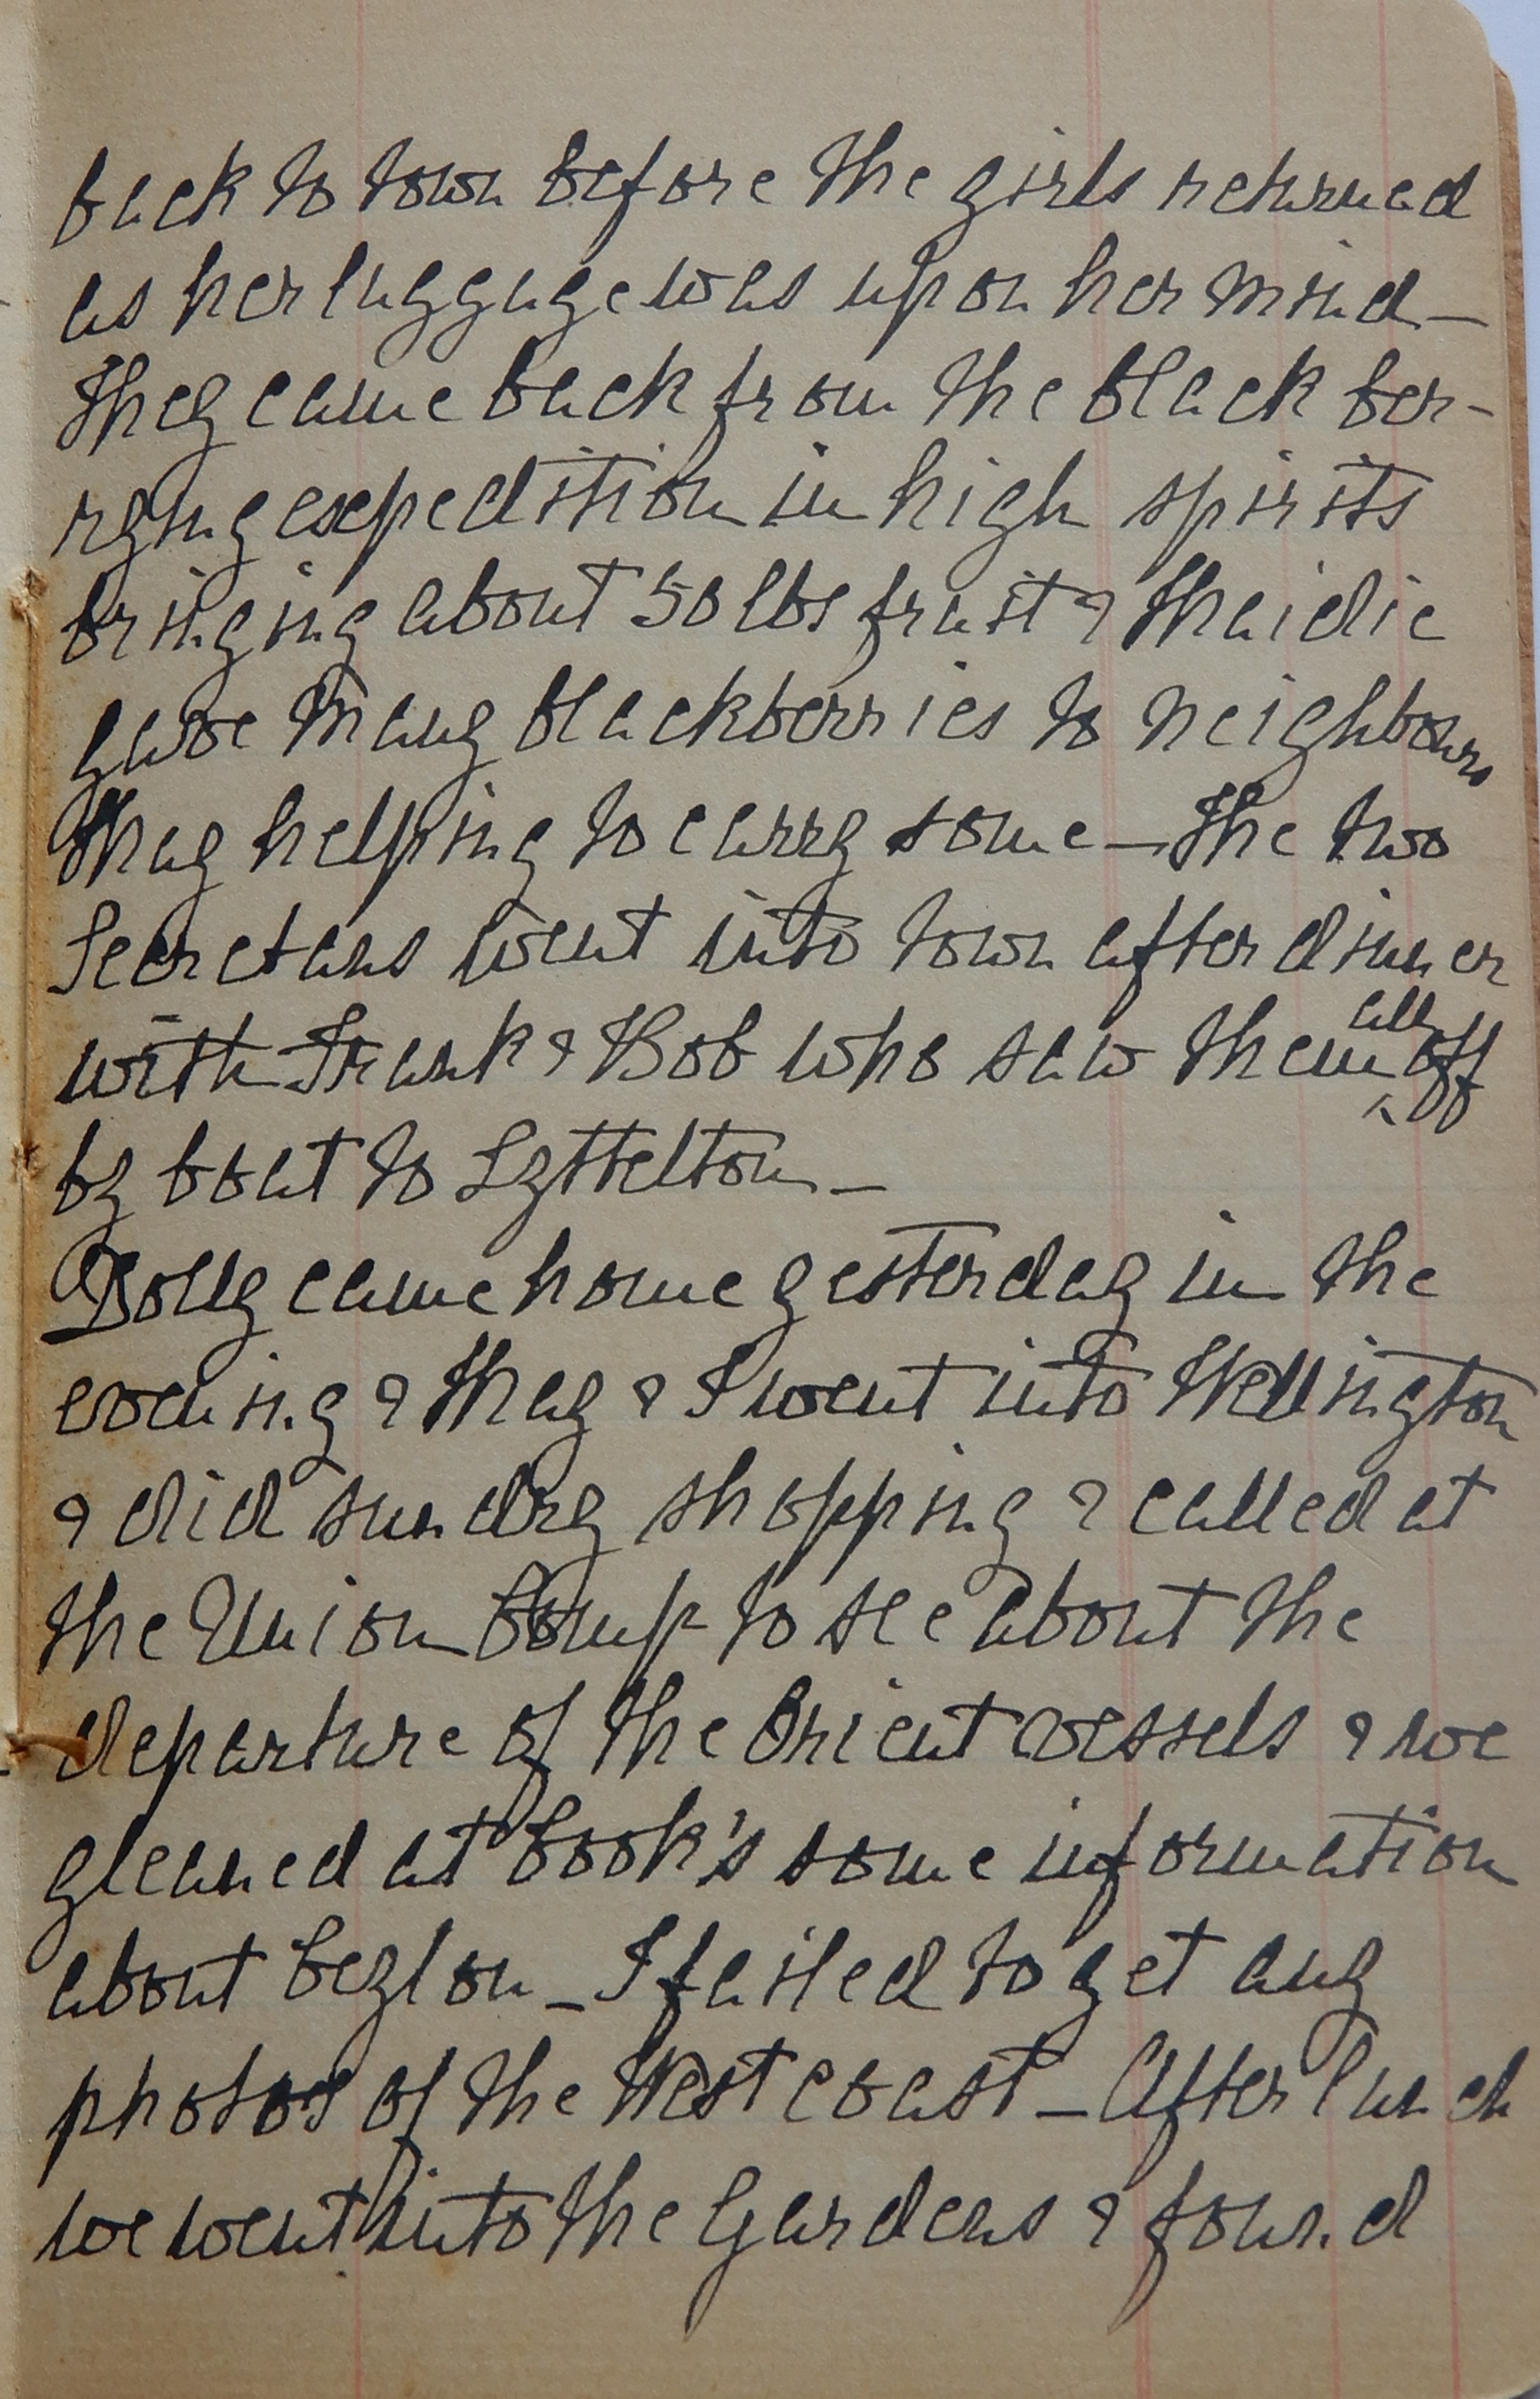 back to town before the girls returned
as her luggage was upon her mind —
They came back from the black ber-
rying expedition in high spirits
bringing about 50 lbs fruit & Maidie
gave many blackberries to neighbours
May helping to carry some — The two
Secretans went into town after dinner
with Frank & Bob who saw them all off
by boat to Lyttelton —
Dolly came home yesterday in the
evening & May & I went into Wellington
& did sundry shopping & called at
the Union Comp to see about the
departure of the Orient vessels & we
gleaned at Cook's some information
about Ceylon — I failed to get any
photos of the West Coast — After lunch
we went into the Gardens & found